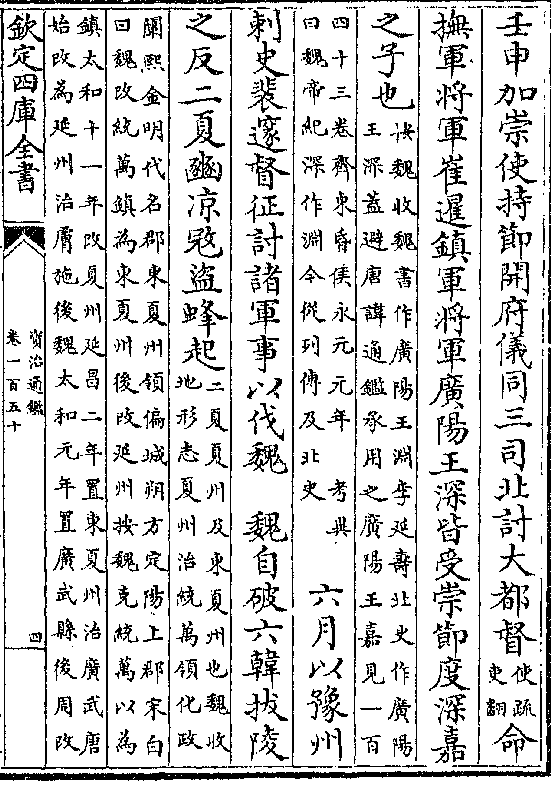 壬申加崇使持節開府儀同三司北討大都督
使疏
吏翻
命
撫軍將軍崔暹鎮軍將軍廣陽王深皆受崇節度深嘉
之子也
按魏收魏書作廣陽王淵李延壽北史作廣陽
王深蓋避唐諱通鑑承用之廣陽王嘉見一百
四十三卷齊東昏侯永元元年 考異
曰魏帝紀深作淵今從列傳及北史
六月以豫州
刺史裴邃督征討諸軍事以伐魏 魏自破六韓拔陵
之反二夏豳凉寇盜蜂起
二夏夏州及東夏州也魏收
地形志夏州治統萬領化政
闡熙金明代名郡東夏州領偏城朔方定陽上郡宋白
曰魏改統萬鎮為東夏州後改延州按魏克統萬以為
鎮太和十一年改夏州延昌二年置東夏州治廣武唐
始改為延州治膚施後魏太和元年置廣武縣後周改
欽定四庫全書
資治通鑑
卷一百五十
四